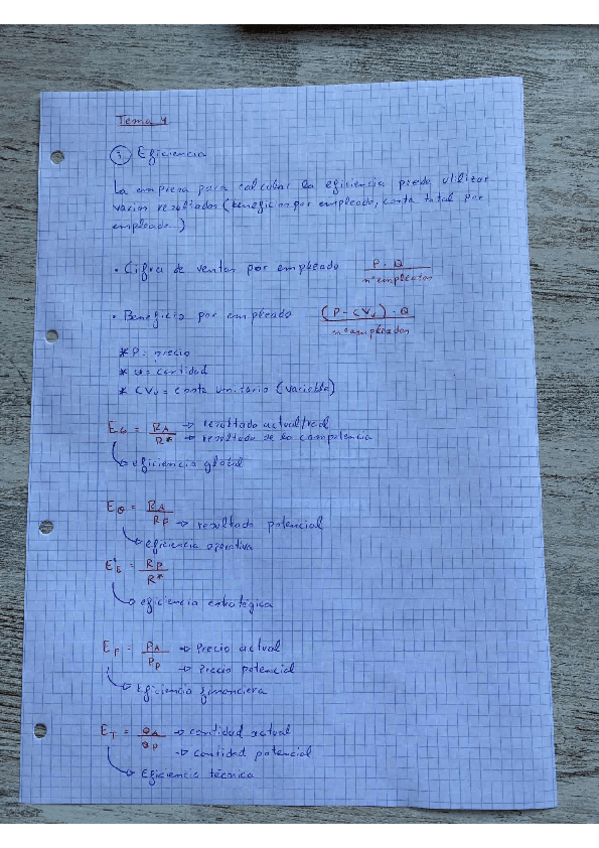 Tema 4
1. Eficiencia
La empresa para calcular la eficiencia puede utilizar
varios resultados (beneficios por empleado, coste total por
empleado...)
• Cifra de ventas por empleado P · Q / nº empleados
• Beneficio por empleado (P - CVu) · Q / nº empleados
* P: precio
* Q = cantidad
* CVu = coste unitario (variable)
EG = RA / R* → resultado actual/real
→ resultado de la competencia
↳ eficiencia global
EO = RA / RP → resultado potencial
↳ eficiencia operativa
EE = RP / R*
↳ eficiencia estratégica
EF = PA / PP → Precio actual
→ Precio potencial
↳ Eficiencia financiera
ET = QA / QP → cantidad actual
→ cantidad potencial
↳ Eficiencia técnica